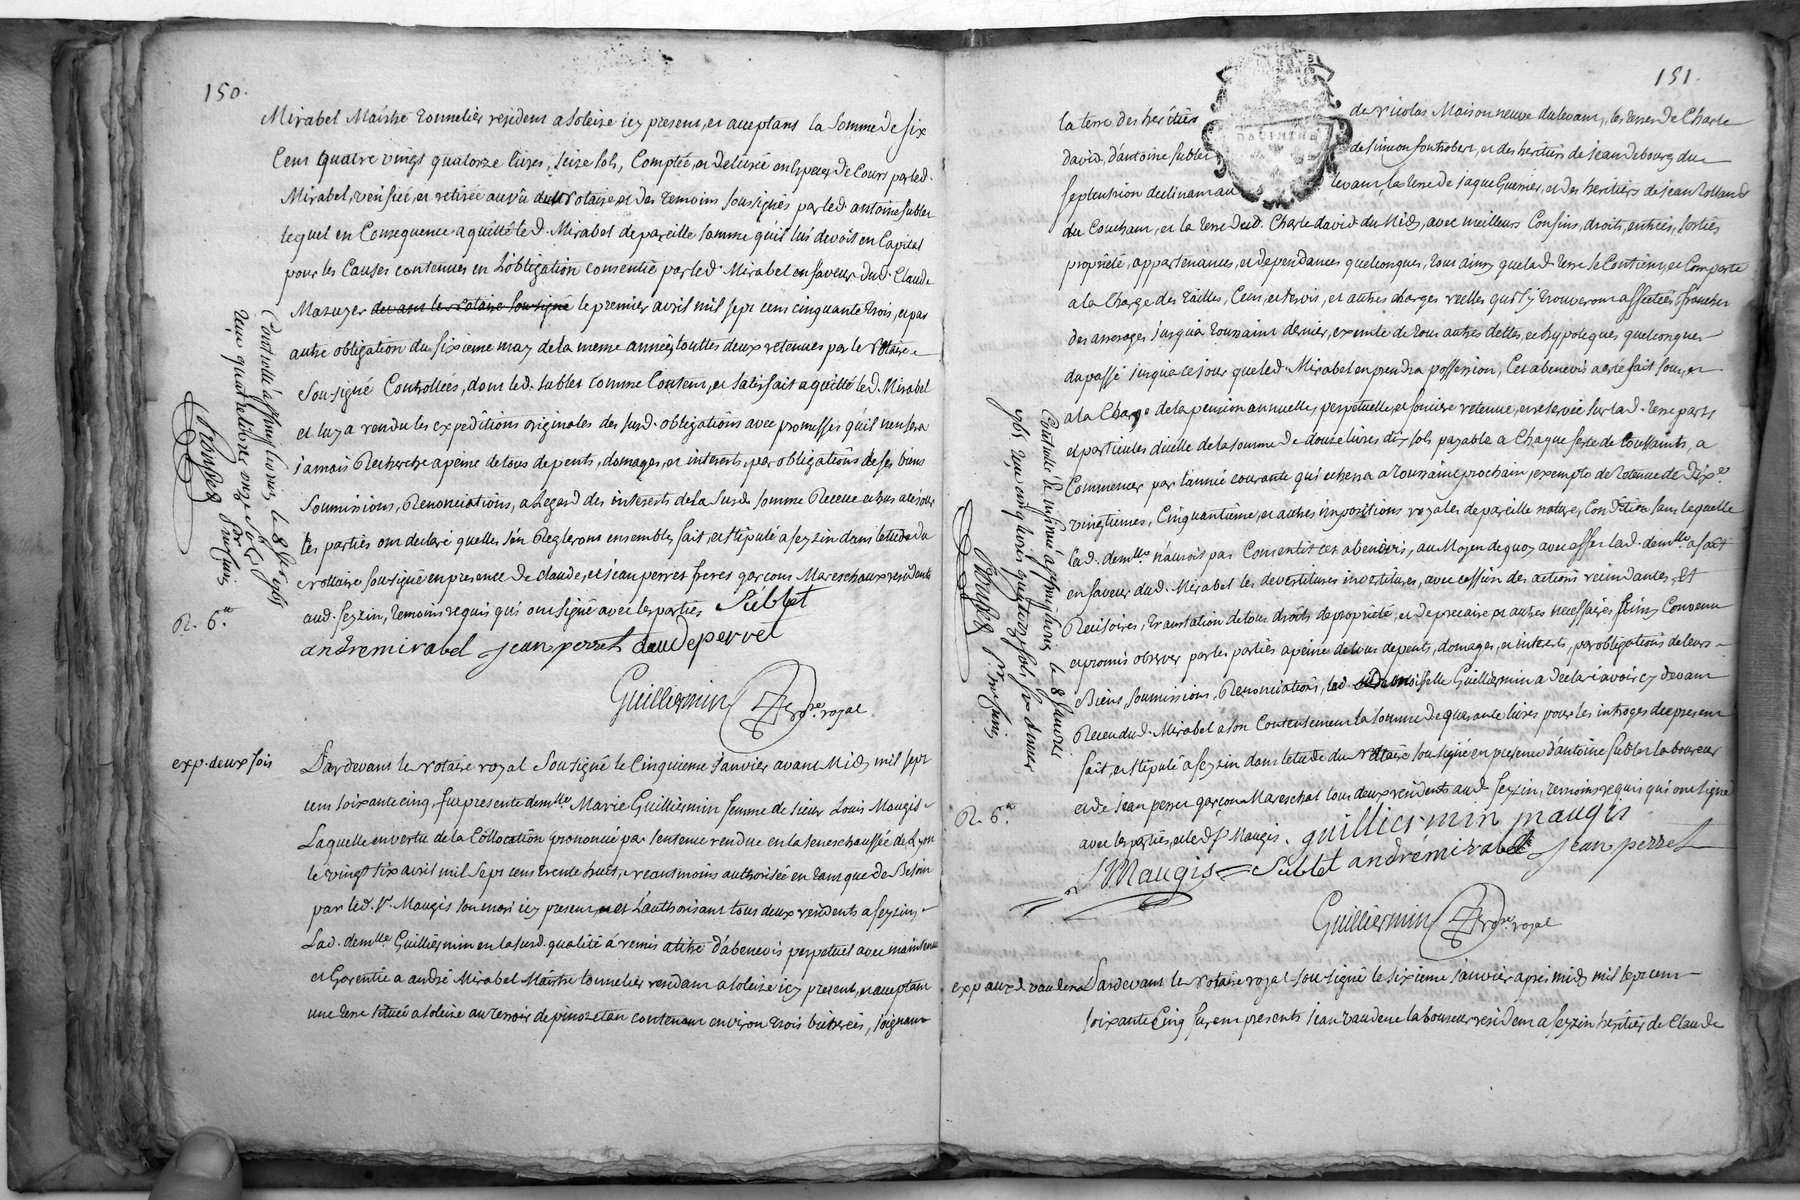 150.
Mirabel Maistre tonnelier resident a Soleize icy present, et acceptant la Somme de six
Cent quatre vingt quatorze livres, seize sols, Comptée, et delivrée en especes de Cours par led.
Mirabel, verifiée, et retirée au vû du Notaire, et des temoins soussignés par led antoine sublet
lequel en Consequence a quitté led. Mirabel de pareille somme quil lui devoit en Capital
pour les Causes contenues en L'obligation consentie par led. Mirabel en faveur dud. Claude
Mazuyer devant le Notaire soussigné le premier avril mil sept cent cinquante trois, et par
autre obligation du sixieme may de la meme année, touttes deux retenues par le Notaire
soussigné Controllées, dont led. Sublet comme Content, et satisfait a quitté led. Mirabel
et luy a rendu les expeditions originales des susd. obligations avec promesses qu'il n'en sera
jamais Recherché a peine de tous depents, domages, et interests, par obligations de ses biens
Soumissions, Renonciations, a Legard des interests de la susd. somme
les parties ont declaré quelles s'en Regleront ensemble, fait, et stipulé a feyzin dans letude du
nottaire soussigné en presence de claude, et jean perret freres garçons Mareschaux residents
aud. feyzin, temoins requis qui ont signé avec les parties Sublet
andre mirabel jean perret claude perret
Guilliermin Nore. royal
R. 6.
Controllé a st simphorien, le 8 jer 1765
Reçu quatre livres onze sols
exp. deux fois
Pardevant le Notaire royal soussigné le Cinquieme Janvier avant Midy mil sept
cent soixante cinq, fut presente demlle. Marie Guilliermin femme de sieur Louis Maugis
Laquelle en vertu de la Collocation prononcée par sentence rendue en la seneschaussée de Lyon
le vingt six avril mil sept cent trente huit, neanmoins authorisée en tant que de Besoin
par led. sr. Maugis son mari icy present et L'authorisant tous deux residents a feyzin,
Lad. demlle Guilliermin en la susd. qualité a remis a titre d'abenevis perpetuel avec maintenue
et Garentie a andré Mirabel Maistre tonnelier resident a soleize icy present, et acceptant
une terre située a soleize au terroir de pinozetan contenant environ trois bicherées, joignant
151.
la terre des heritiers de Nicolas Maisonneuve du levant, les terres de Charle
david, d'antoine sublet de simeon fontrobert, et des heritiers de jean debourg du
septentrion declinant au levant, la terre de jaque Guerrier, et des heritiers de jean rolland
du Couchant, et la terre dud. Charle david du Midy, avec meilleurs Confins, droits, entrées, sorties
propriété, appartenances, et dependances quelconques, tout ainsy que lad. terre se Contient, et Comporte
a la Charge des tailles, Cens, et servis, et autres charges reelles qui s'y trouveront affectées, franches
des arrerages jusqu'a toussaint dernier, exempte de tous autres dettes, et hypoteques quelconques
du passé jusqu'a ce jour que led. Mirabel en prendra possession, Cet abenevis a eté fait sous, et
a la Charge de la pension annuelle, perpetuelle, et fonciere retenue, et reservée sur lad. terre parts
et particules d'icelle de la somme de douze livres dix sols payable a Chaque feste de toussaints, a
Commencer par l'année courante qui echerra a toussaint prochain, exempte de Retenue de Dixe.
vingtiemes, Cinquantieme, et autres impositions royales de pareille nature, Condition sans laquelle
lad. demlle n'auroit pas Consentit cet abenevis, au Moyen de quoy lad. demlle a fait
en faveur dud. Mirabel les devestitures investitures, avec cession des actions rescindantes, Et
Rescisoires, translation de tous droits de proprieté, et de precaire et autres necessaires, Ainsy Convenu
et promis observer par les parties a peine de tous depents, domages, et interests, par obligations de leurs
Biens, soumissions, Renonciations, lad. Demoiselle Guilliermin a declaré avoir cy devant
Receu dud. Mirabel a son Contentement la somme de quarante livres pour les introges du present
fait, et stipulé a feyzin dans letude du Notaire soussigné en presence d'antoine sublet laboureur
et de jean perret garçon Mareschal tous deux residents aud. feyzin, temoins requis qui ont signé
avec les parties, et led. sr. Maugis. guilliermin maugis
L Maugis Sublet andre mirabel jean perret
Guilliermin Nore. royal
R. 6.
Controllé a st simphorien, le 8 janvier
1765 Reçu cinq livres quatorze sols six deniers
exp aux d. vaudene
Pardevant le Notaire royal soussigné le sixieme janvier apres midy mil sept cent
soixante Cinq furent presents jean vaudene laboureur resident a feyzin heritier de Claude